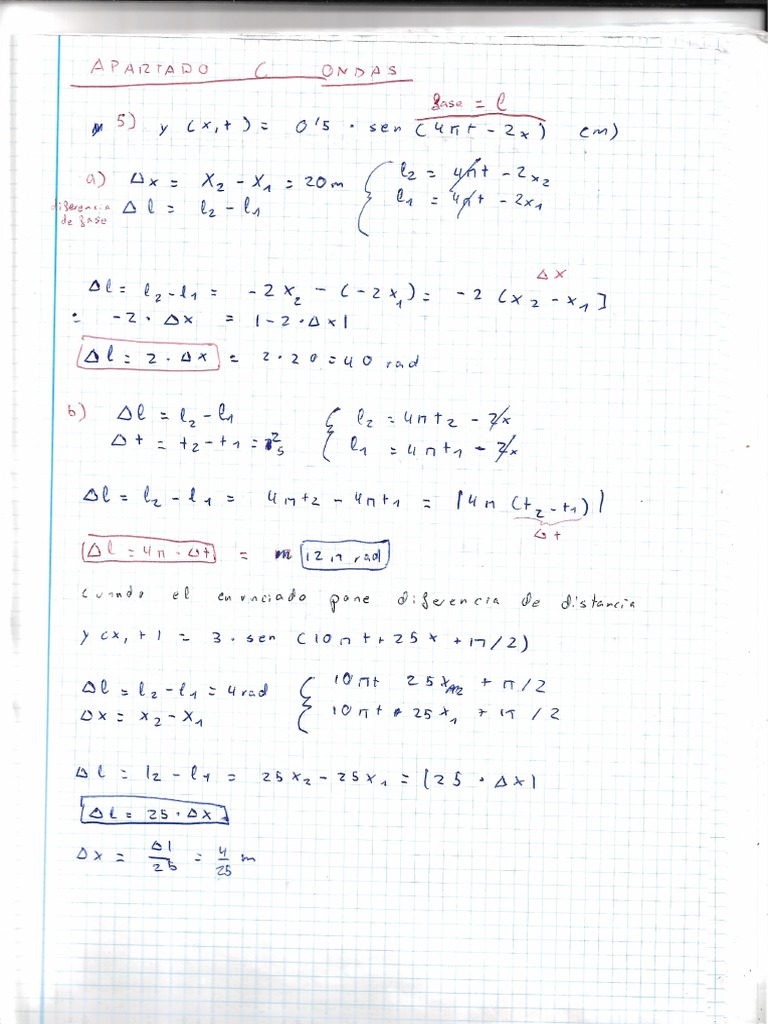 APARTADO C ONDAS
fase = l
5) y (x,t) = 0'5 · sen (4πt - 2x) (m)
a) Δx = x2 - x1 = 20m { l2 = 4πt - 2x2
diferencia de fase Δl = l2 - l1 l1 = 4πt - 2x1
Δx
Δl = l2 - l1 = -2x2 - (-2x1) = -2 (x2 - x1)
= -2 · Δx = |-2 · Δx|
Δl = 2 · Δx = 2 · 20 = 40 rad
b) Δl = l2 - l1 { l2 = 4πt2 - 2x
Δt = t2 - t1 = l1 = 4πt1 - 2x
Δl = l2 - l1 = 4πt2 - 4πt1 = |4π (t2 - t1)|
Δt
Δl = 4π · Δt = rad
cuando el enunciado pone diferencia de distancia
y(x,t) = 3 · sen (10πt + 25x + π/2)
Δl = l2 - l1 = 4 rad { 10πt 25x2 + π/2
Δx = x2 - x1 10πt + 25x1 + π/2
Δl = l2 - l1 = 25x2 - 25x1 = |25 · Δx|
Δl = 25 · Δx
Δx = Δl/25 = 4/25 m